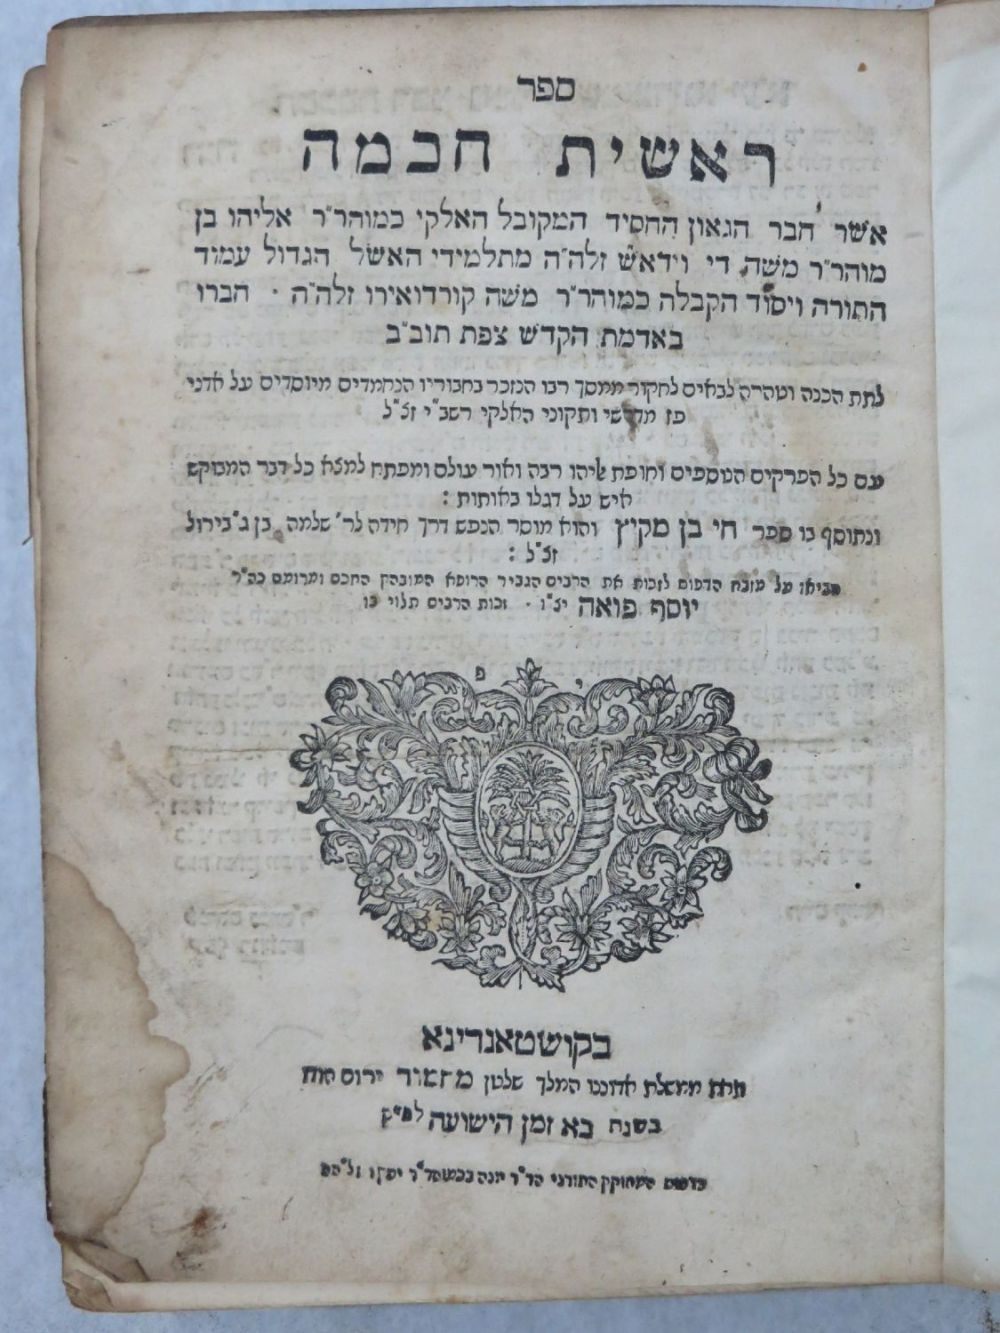 ספר
ראשית חכמה
אשר חבר הגאון החסיד המקובל האלקי כמוהר״ר אליהו בן
מוהר״ר משה די וידאש זלה״ה מתלמידי האשל הגדול עמוד
התורה ויסוד הקבלה כמוהר״ר משה קורדואירו זלה״ה · חברו
באדמת הקדש צפת תוב״ב
לתת הכנה וטהרה לבאים לחקור ממסך רבו הנזכר בחבוריו הנחמדים מיוסדים על אדני
פז מדרשי ותקוני האלקי רשב״י זצ״ל
עם כל הפרקים הנוספים וחופת אליהו רבה ואור עולם ומפתח למצא כל דבר המבוקש
איש על דגלו באותות :
ונתוסף בו ספר חי בן מקיץ והוא מוסר הנפש דרך חידה לר׳ שלמה בן ג׳בירול
זצ״ל :
הביאו על מזבח הדפוס לזכות את הרבים הגביר הרופא המובהק החכם ומרומם כה״ר
יוסף פואה יצ״ו · זכות הרבים תלוי בו
י פ
בקושטאנדינא
תחת ממשלת אדוננו המלך שלטן מחמוד ירום הודו
בשנת בא זמן הישועה לפ״ק
בדפוס המחוקק התורני הר״ר יונה בכמוהר״ר יעקו זלה״ה